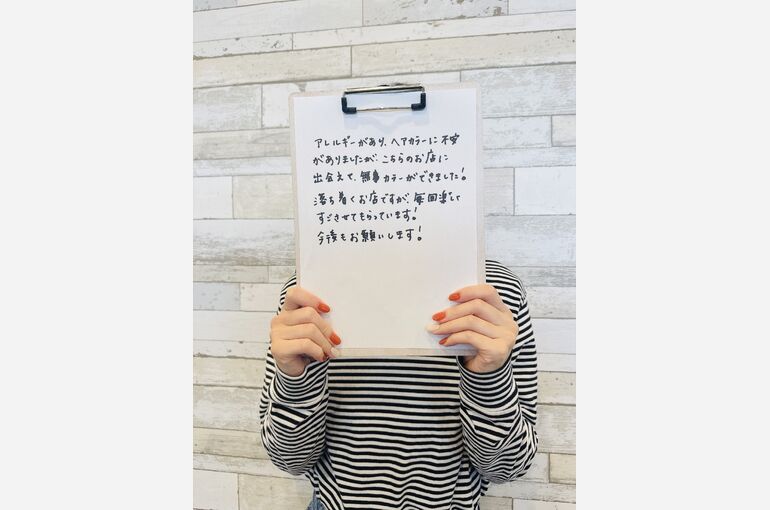 アレルギーがあり、ヘアカラーに不安
がありましたが、こちらのお店に
出会えて、無事カラーができました!
落ち着くお店ですが、毎回楽しく
すごさせてもらっています!
今後もお願いします!